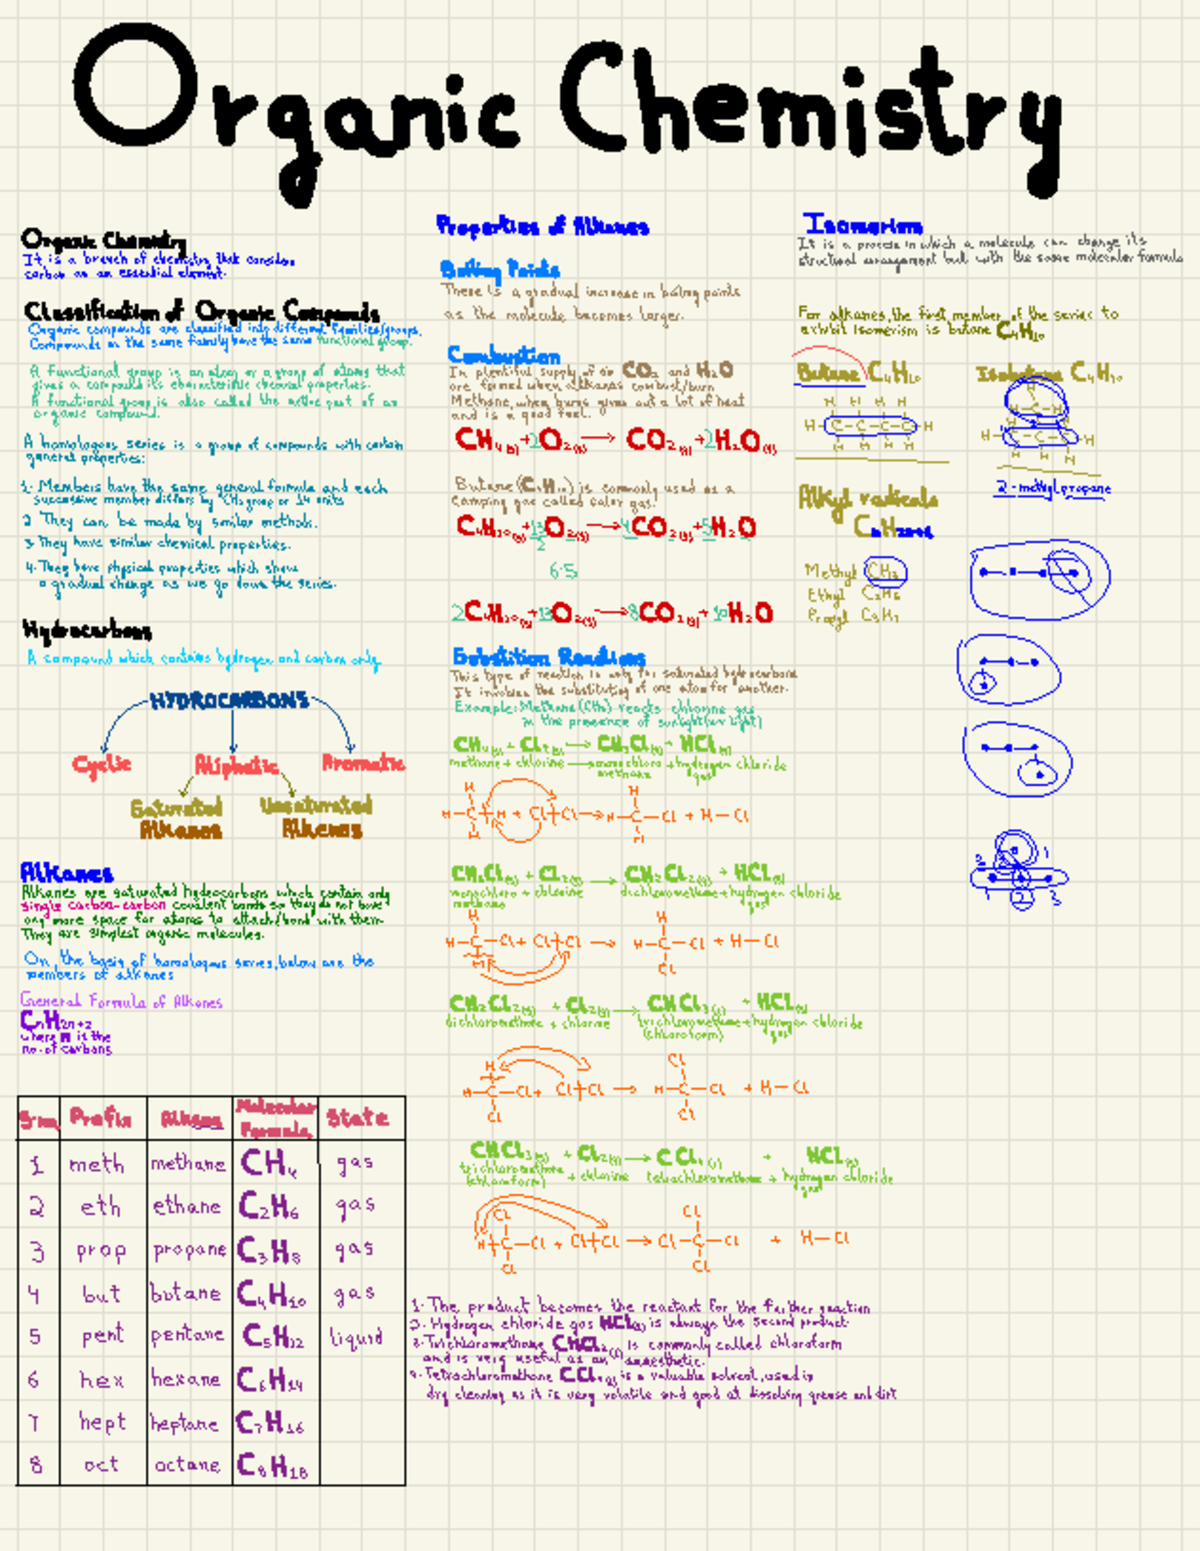 Organic Chemistry
Organic Chemistry
It is a branch of chemistry that consider
carbon as an essential element.
Classification of Organic Compounds
Organic compounds are classified into different families/groups.
Compounds in the same family have the same functional group.
A functional group is an atom or a group of atoms that
gives a compound its characteristic chemical properties.
A functional group is also called the active part of an
organic compound.
A homologous series is a group of compounds with certain
general properties:
1. Members have the same general formula and each
successive member differs by CH₂ group or 14 units
2 They can be made by similar methods.
3 They have similar chemical properties.
4. They have physical properties which show
a gradual change as we go down the series.
Hydrocarbons
A compound which contains hydrogen and carbon only
HYDROCARBONS
Cyclic Aliphatic Aromatic
Saturated Unsaturated
Alkanes Alkenes
Alkanes
Alkanes are saturated hydrocarbons which contain only
single carbon-carbon covalent bonds so they do not have
any more space for atoms to attach/bond with them
They are simplest organic molecules.
On, the basis of homologous series, below are the
members of alkanes
General Formula of Alkanes
CnH2n+2
where n is the
no. of carbons
S.no Prefix Alkane Molecular Formula State
1 meth methane CH₄ gas
2 eth ethane C₂H₆ gas
3 prop propane C₃H₈ gas
4 but butane C₄H₁₀ gas
5 pent pentane C₅H₁₂ liquid
6 hex hexane C₆H₁₄
7 hept heptane C₇H₁₆
8 oct octane C₈H₁₈
Properties of Alkanes
Boiling Points
There is a gradual increase in boiling points
as the molecule becomes larger.
Combustion
In plentiful supply of air CO₂ and H₂O
are formed when alkanes combust/burn
Methane when burns gives out a lot of heat
and is a good fuel.
CH₄(g) + 2O₂(g) → CO₂(g) + 2H₂O(g)
Butane (C₄H₁₀) is commonly used as a
camping gas called calor gas.
C₄H₁₀(g) + 13/2 O₂(g) → 4CO₂(g) + 5H₂O
6.5
2C₄H₁₀(g) + 13O₂(g) → 8CO₂(g) + 10H₂O
Substition Reactions
This type of reaction is only for saturated hydrocarbons
It involves the substituting of one atom for another.
Example: Methane (CH₄) reacts chlorine gas
in the presence of sunlight (uv light)
CH₄(g) + Cl₂(g) → CH₃Cl(g) + HCl(g)
methane + chlorine → monochloro methane + hydrogen chloride gas
H H
H-C-H + Cl-Cl → H-C-Cl + H-Cl
H H
CH₃Cl(g) + Cl₂(g) → CH₂Cl₂(g) + HCl(g)
monochloro methane + chlorine dichloromethane + hydrogen chloride gas
H H
H-C-Cl + Cl-Cl → H-C-Cl + H-Cl
H Cl
CH₂Cl₂(g) + Cl₂(g) → CHCl₃(g) + HCl(g)
dichloromethane + chlorine trichloromethane + hydrogen chloride
(chloroform) gas
H Cl
H-C-Cl + Cl-Cl → H-C-Cl + H-Cl
Cl Cl
CHCl₃(g) + Cl₂(g) → CCl₄(g) + HCl(g)
trichloromethane + chlorine tetrachloromethane + hydrogen chloride
(chloroform) gas
Cl Cl
H-C-Cl + Cl-Cl → Cl-C-Cl + H-Cl
Cl Cl
1. The product becomes the reactant for the further reaction
2. Hydrogen chloride gas HCl(g) is always the second product
3. Trichloromethane CHCl₃(l) is commonly called chloroform
and is very useful as an anaesthetic.
4. Tetrachloromethane CCl₄(l) is a valuable solvent, used in
dry cleaning as it is very volatile and good at dissolving grease and dirt
Isomerism
It is a process in which a molecule can change its
structural arrangement but with the same molecular formula
For alkanes, the first member of the series to
exhibit Isomerism is butane C₄H₁₀
Butane C₄H₁₀ Isobutane C₄H₁₀
H H H H
H-C-C-C-C-H
H H H H
H-C-H
H-C-C-C-H
H H H
2-methylpropane
Alkyl radicals
CnH2n+1
Methyl CH₃
Ethyl C₂H₅
Propyl C₃H₇
1
2
3